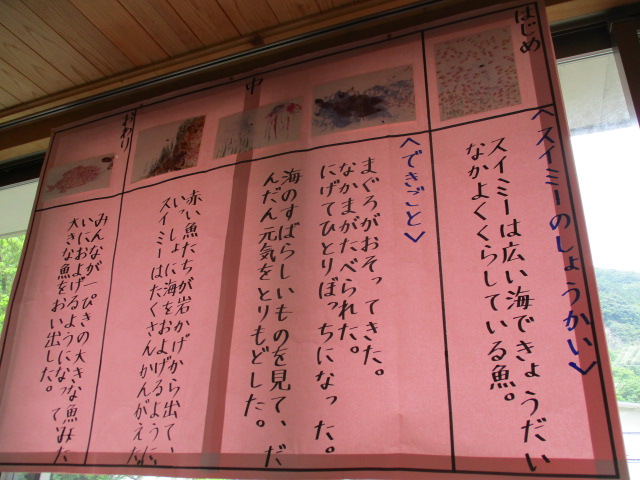 はじめ
〈スイミーのしょうかい〉
スイミーは広い海できょうだい
なかよくくらしている魚。
中
〈できごと〉
まぐろがおそってきた。
なかまがたべられた。
にげてひとりぼっちになった。
海のすばらしいものを見て、だ
んだん元気をとりもどした。
赤い魚たちが岩かげから出て、
いっしょに海をおよげるように、
スイミーはたくさんかんがえた
おわり
みんなが一ぴきの大きな魚みた
いにおよげるようになって、
大きな魚をおい出した。